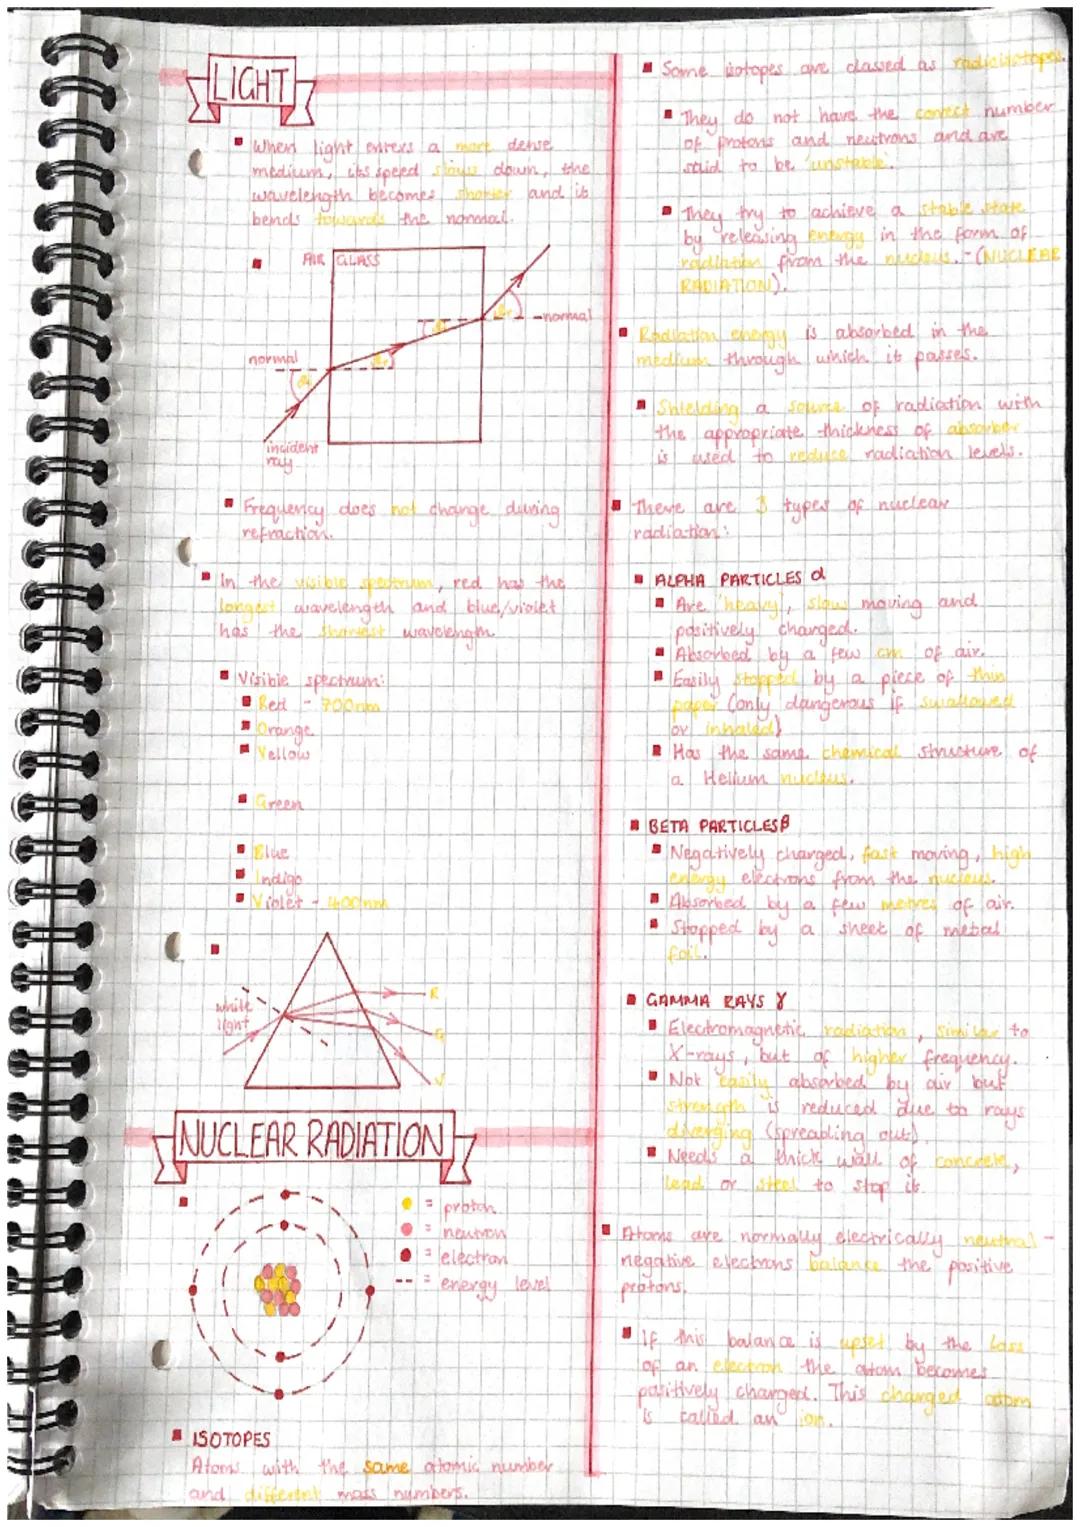 LIGHT
When light enters a more dense
medium, its speed slows down, the
wavelength becomes shorter and it
bends towards the normal.
AIR GLASS
normal
normal
incident
ray
Frequency does not change during
refraction.
In the visible spectrum, red has the
longest wavelength and blue/violet
has the shortest wavelength
Visible spectrum:
Red - 700nm
Orange
Yellow
Green
Blue
Indigo
Violet - 400nm
white
light
R
G
V
NUCLEAR RADIATION
= proton
= neutron
= electron
= energy level
ISOTOPES
Atoms with the same atomic number
and different mass numbers.
Some isotopes are classed as radioisotopes.
They do not have the correct number
of protons and neutrons and are
said to be 'unstable'.
They try to achieve a stable state
by releasing energy in the form of
radiation from the nucleus. - (NUCLEAR
RADIATION).
Radiation energy is absorbed in the
medium through which it passes.
Shielding a source of radiation with
the appropriate thickness of absorber
is used to reduce radiation levels.
There are 3 types of nuclear
radiation:
ALPHA PARTICLES α
Are 'heavy', slow moving and
positively charged.
Absorbed by a few cm of air.
Easily stopped by a piece of thin
paper (only dangerous if swallowed
or inhaled)
Has the same chemical structure of
a Helium nucleus.
BETA PARTICLES β
Negatively charged, fast moving, high
energy electrons from the nucleus.
Absorbed by a few metres of air.
Stopped by a sheet of metal
foil.
GAMMA RAYS γ
Electromagnetic radiation, similar to
X-rays, but of higher frequency.
Not easily absorbed by air but
strength is reduced due to rays
diverging (spreading out).
Needs a thick wall of concrete,
lead or steel to stop it.
Atoms are normally electrically neutral -
negative electrons balance the positive
protons.
If this balance is upset by the loss
of an electron the atom becomes
positively charged. This charged atom
is called an ion.